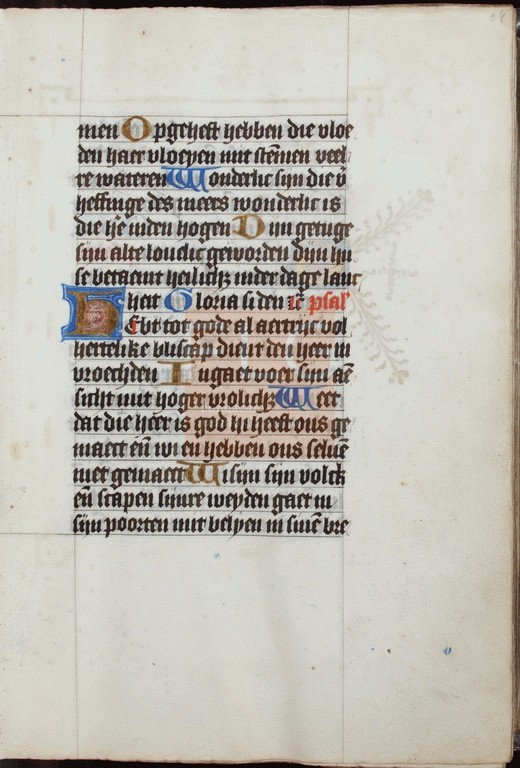 men Opgeheft hebben die vloe
den haer vloeyen mit stemen veel
re wateren Wonderlic sijn die v̄
heffinge des meers wonderlic is
die hē inden hogen Dijn getuge
sijn alte louelic geworden dijn hu
se betaemt heilichz inder dage lanc
heit Gloria si den iē psal
Hebt tot gode al aertrijc vol
hertelike bliscap dient den heer in
vroechden Ingaet voer sijn aē
sicht mit hoger vrolichz Weet
dat die heer is god hi heeft ons ge
maect eñ wi en hebben ons seluē
niet gemaect Wi sijn sijn volck
eñ scapen sijnre weyden gaet in
sijn poorten mit belyen in sinē vre